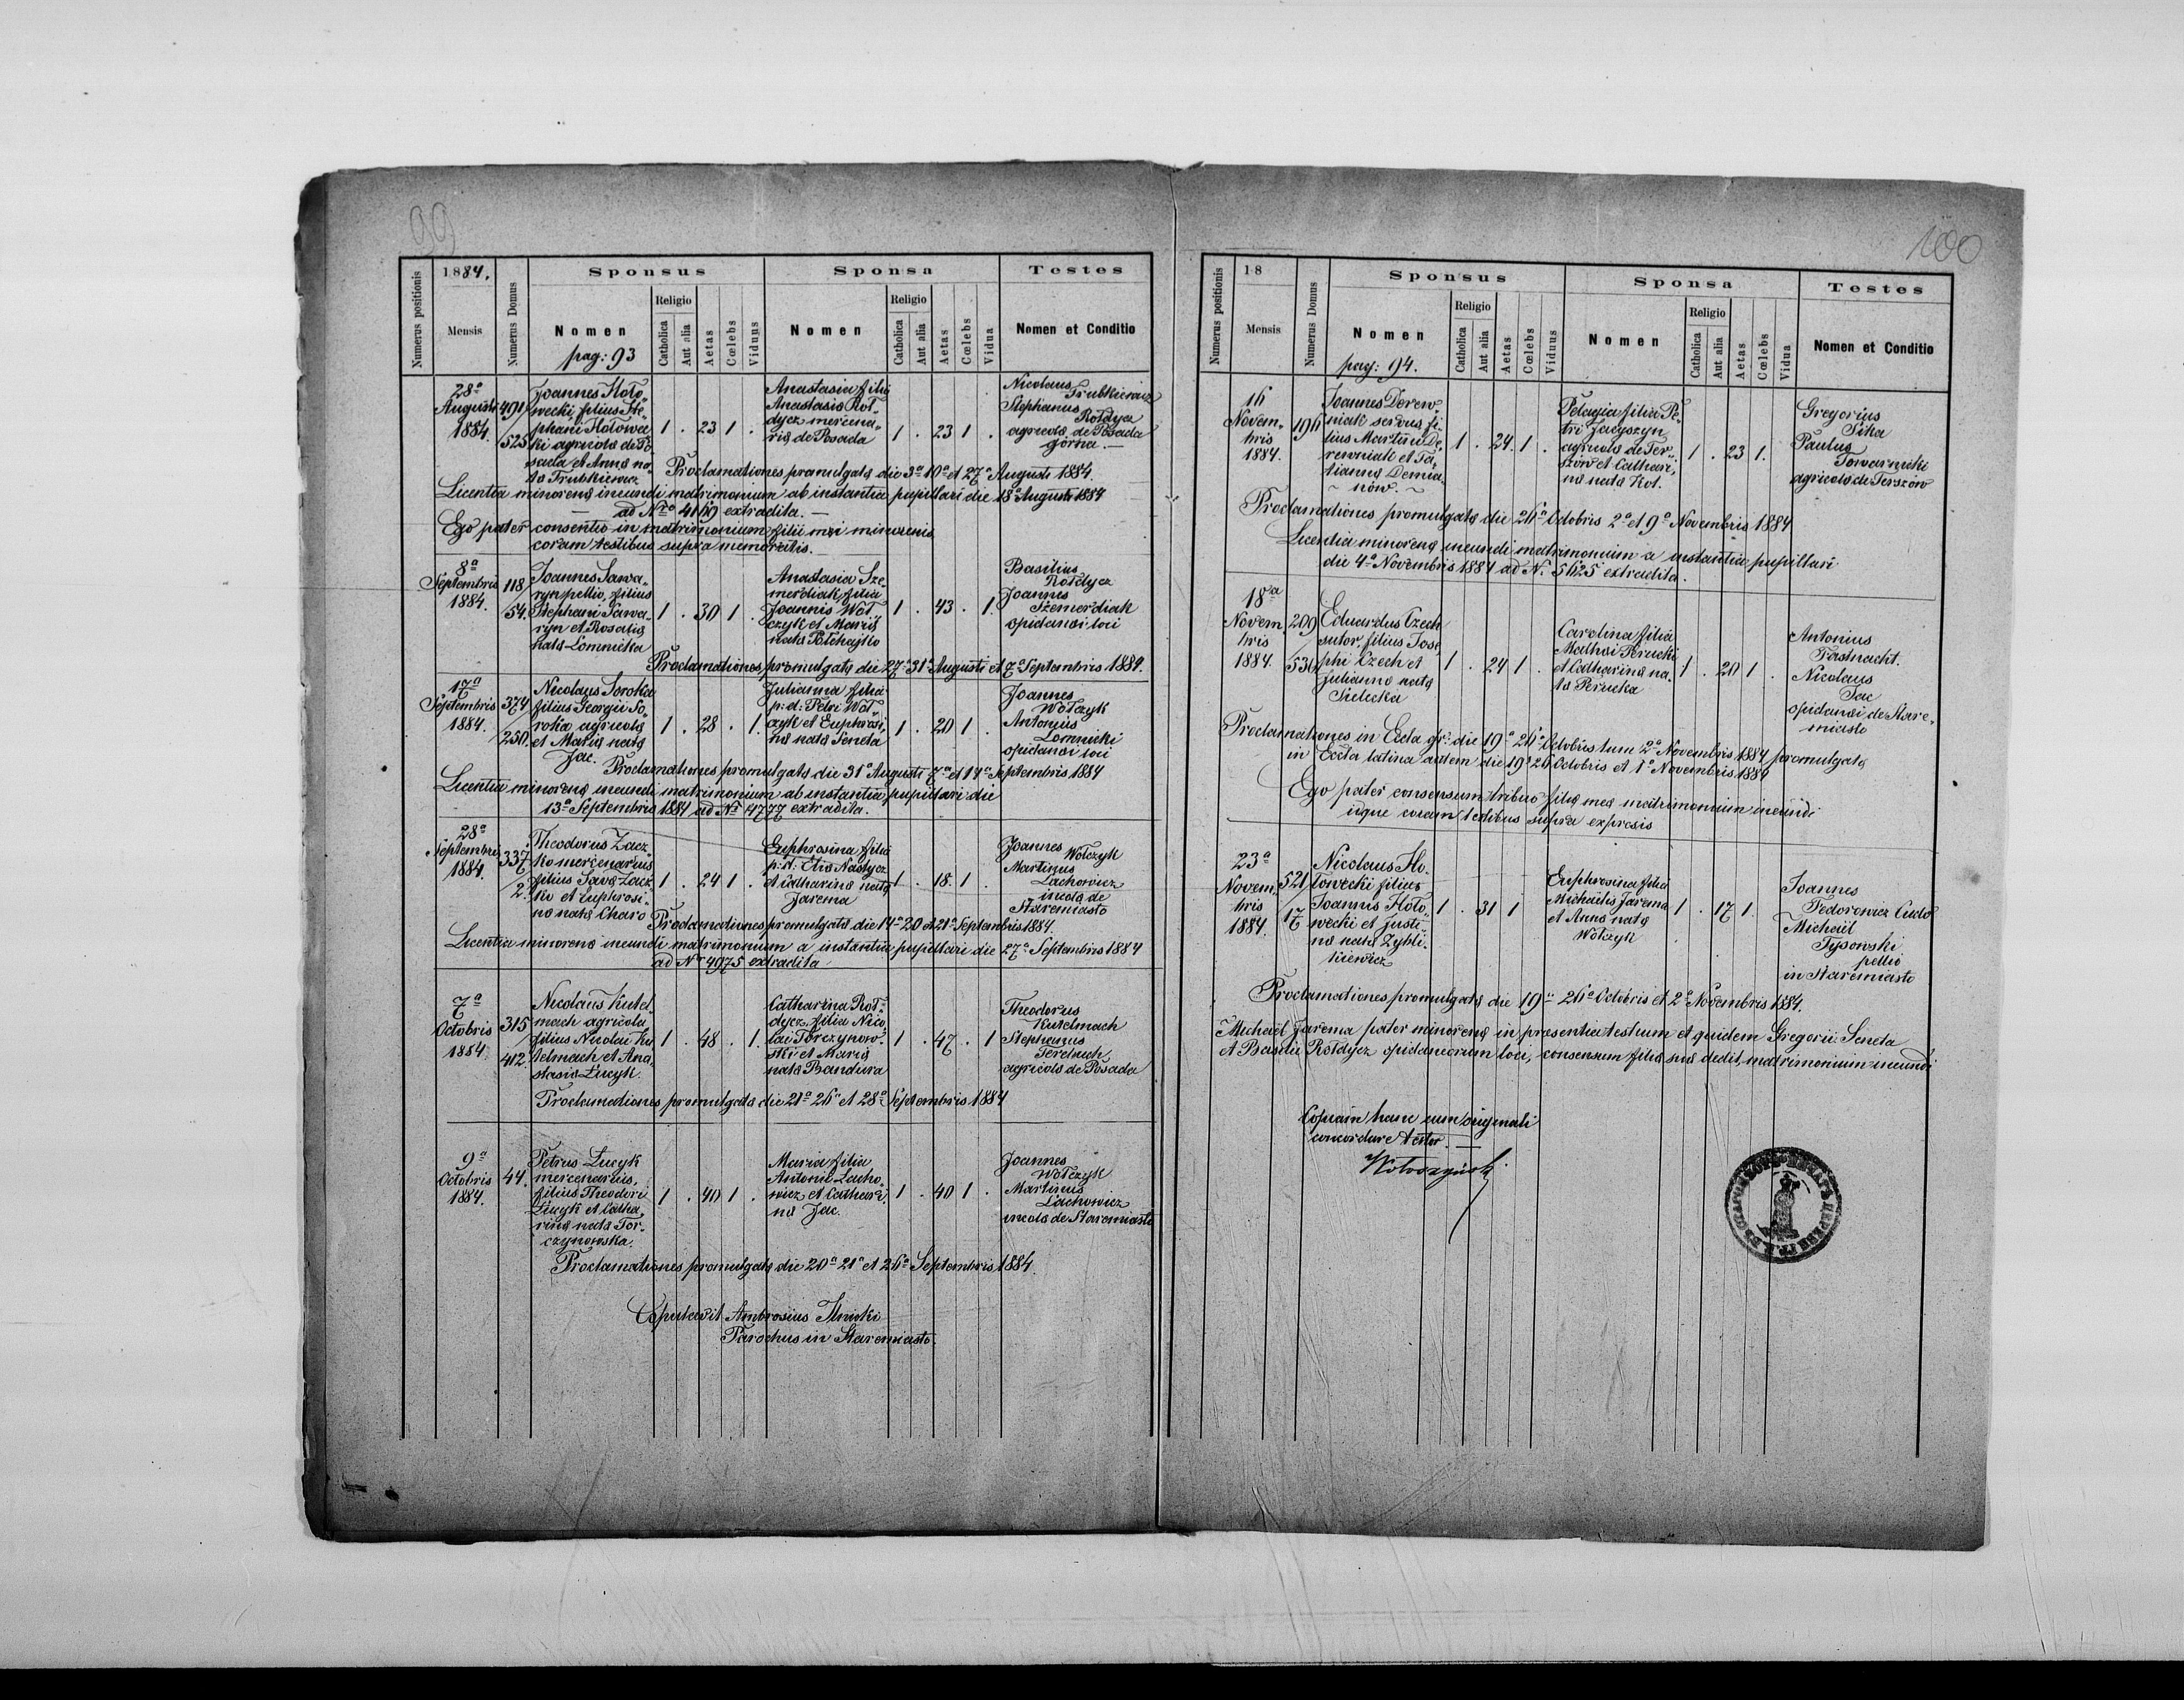 99
Numerus positionis
1884.
Mensis
Numerus Domus
Sponsus
Nomen
pag: 93
Religio
Catholica
Aut alia
Aetas
Cœlebs
Viduus
Sponsa
Nomen
Religio
Catholica
Aut alia
Aetas
Cœlebs
Vidua
Testes
Nomen et Conditio
28a
Augusti
1884.
491/
525
Joannes Hoło-
wecki filius Ste-
phani Hołowec-
ki agricola de Po-
sada et Anna na-
ta Trubkiewicz
1 . 23 1 .
Anastasia filia
Anastasia Roł-
dycz mercena-
ria de Posada
1 . 23 1 .
Nicolaus
Trubkiewicz
Stephanus
Rołdycz
agricolæ de Posada
górna —
Proclamationes promulgatæ die 3a 10a et 27a Augusti 1884.
Licentia minorenæ ineundi matrimonium ab instantia pupillari die 18a Augusti 1884
— ad Nro 4169 extradita. —
Ego pater consentio in matrimonium filii mei minorenis
coram testibus supra memoratis.
8a
Septembris
1884.
118/
54.
Joannes Sawa-
ryn pellio, filius
Stephani Sawa-
ryn et Rosalia
nata Lomnicka
1 . 30 1 .
Anastasia Sze-
merdiak, filia
Joannis Woł-
czyk et Maria
nata Potchajko
1 . 43 . 1.
Basilius
Rołdycz
Joannes
Szemerdiak
opidanei loci
Proclamationes promulgatæ die 27a 31a Augusti et 7a Septembris 1884.
17a
Septembris
1884.
374
/250.
Nicolaus Soroka
filius Georgii So-
roka agricola
et Maria nata
Jac.
1 . 28 . 1.
Julianna filia
p: d: Petri Woł-
czyk et Euphrosi-
na nata Seneta
1 . 20 1 .
Joannes
Wołczyk
Antonius
Lomnicki
opidanei loci
Proclamationes promulgatæ die 31a Augusti 7a et 14a Septembris 1884
Licentia minorenæ ineundi matrimonium ab instantia pupillari die
13a Septembris 1884 ad Nr 4777 extradita.
28a
Septembris
1884.
337/
2.
Theodorus Zacz-
ko mercenarius
filius Sava Zacz-
ko et Euphrosi-
na nata Charo
1 . 24 1 .
Euphrosina filia
p: d: Elia Nastycz
et Catharina nata
Jarema
1 . 18. 1 .
Joannes Wołczyk
Martinus
Lachowicz
incolæ de
Staremiasto
Proclamationes promulgatæ die 14a 20 et 21a Septembris 1884.
Licentia minorenæ ineundi matrimonium a instantia pupillari die 27a Septembris 1884
ad Nr 4975 extradita
7a
Octobris
1884.
315/
412.
Nicolaus Kutel-
mach agricola
filius Nicolai Ku-
telmach et Ana-
stasia Łucyk.
1 . 48 . 1.
Catharina Roł-
dycz, filia Nico-
lai Torczynow-
ski et Maria
nata Bandura
1 . 47 . 1
Theodorus
Kutelmach
Stephanus
Terelmach
agricolæ de Posada
Proclamationes promulgatæ die 21a 26a et 28a Septembris 1884
9a
Octobris
1884.
44.
Petrus Łucyk
mercenarius,
filius Theodori
Łucyk et Catha-
rina nata Tor-
czynowska.
1 . 40 1 .
Maria filia
Antonii Lacho-
wicz et Cathari-
na Jac.
1 . 40 1 .
Joannes
Wołczyk
Martinus
Lachowicz
incolæ de Staremiasto
Proclamationes promulgatæ die 20a 21a et 26a Septembris 1884.
Copulavit Ambrosius Ilnicki
Parochus in Staremiasto.
100
Numerus positionis
18
Mensis
Numerus Domus
Sponsus
Nomen
pag: 94.
Religio
Catholica
Aut alia
Aetas
Cœlebs
Viduus
Sponsa
Nomen
Religio
Catholica
Aut alia
Aetas
Cœlebs
Vidua
Testes
Nomen et Conditio
16
Novem-
bris
1884.
196
Joannes Derew-
niak servus, fi-
lius Martini De-
rewniak et Ta-
tianna Demia-
nów. ~
1 . 24. 1 .
Pelagia filia Pe-
tri Jacyszyn
agricola de Ter-
szów et Cathari-
na nata Kot.
1 . 23 1.
Gregorius
Sika
Paulus
Towarnicki
agricolæ de Terszów
Proclamationes promulgatæ die 26a Octobris 2a et 9a Novembris 1884
Licentia minorenæ ineundi matrimonium a instantia pupillari
die 4a Novembris 1884 ad Nr 5625 extradita.
18a
Novem-
bris
1884.
209
/536
Eduardus Czech
sutor, filius Jose-
phi Czech et
Julianna nata
Sielecka
1 . 24 1 .
Carolina filia
Mathæi Perucki
et Catharina na-
ta Perucka
1 . 20 1 .
Antonius
Fastnacht.
Nicolaus
Jac
opidanei de Stare-
miasto
Proclamationes in Eccla gr: die 19a 26a Octobris tum 2a Novembris 1884 promulgatæ
in Eccla latina autem die 19a 26 Octobris et 1a Novembris 1884
Ego pater consensum tribuo filiæ meæ matrimonium ineundi
idque coram testibus supra expresis
23a
Novem-
bris
1884.
521/
17
Nicolaus Ho-
łowecki filius
Joannis Hoło-
wecki et Justi-
na nata Zybli-
kiewicz
1 . 31 1
Euphrosina filia
Michaelis Jarema
et Anna nata
Wołczyk
1 . 17 1.
Joannes
Fedorowicz Cudo
Michael
Tysowski
pellio
in Staremiasto
Proclamationes promulgatæ die 19a 26a Octobris et 2a Novembris 1884.
Michael Jarema pater minorenæ in præsentia testium et quidem Gregorii Seneta
et Basilii Rołdycz opidaneorum loci, consensum filiæ suæ dedit, matrimonium ineundi
Copiam hanc cum originali
concordare testor. —